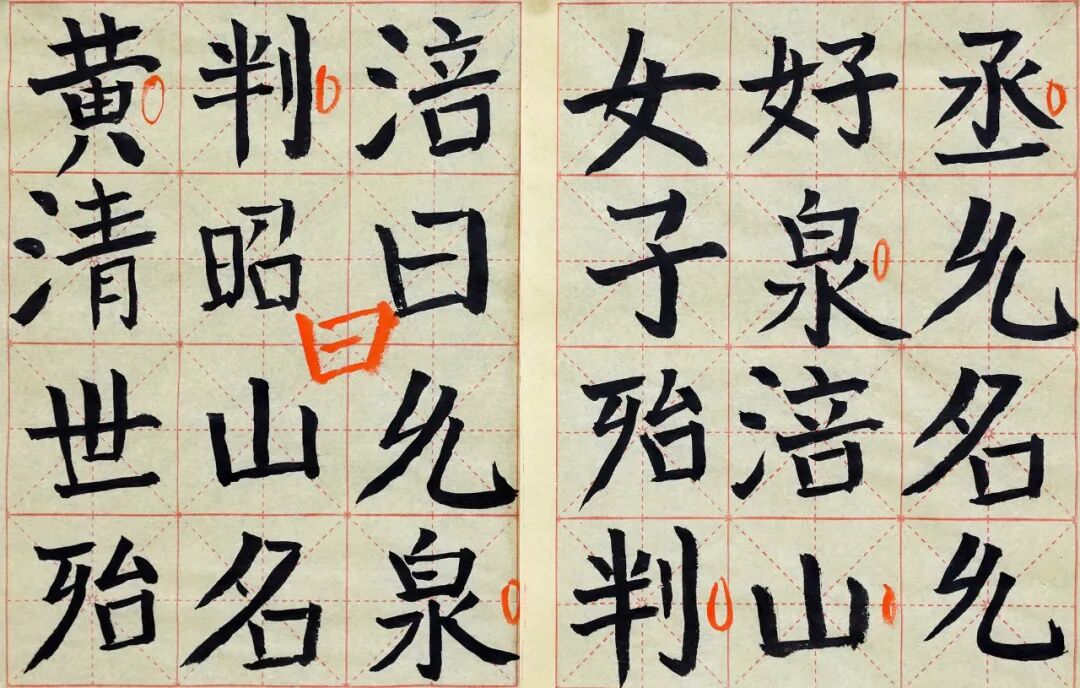 丞名
好泉涪山
女子殆判
涪曰泉
判昭山名
黄清世殆
曰